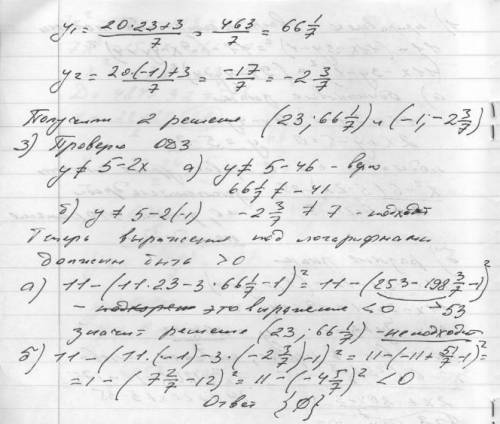 y₁ = (20·23+3)/7 = 463/7 = 66 1/7
y₂ = (20(-1)+3)/7 = -17/7 = -2 3/7
Получили 2 решение (23; 66 1/7) и (-1; -2 3/7)
3) Проверю ОДЗ
y ≠ 5-2x а) y ≠ 5-46 -
66 1/7 ≠ -41
б) y ≠ 5-2(-1) -2 3/7 ≠ 7 - подходит
Теперь выражения под логарифмами
должны быть >0
а) 11-(11·23-3·66 1/7-1)² = 11-(253-198 3/7-1)²
- это выражение <0 >53
значит решение (23; 66 1/7) - не подходит
б) 11-(11·(-1)-3·(-2 3/7)-1)² = 11-(-11+51/7-1)² =
= 1-(7 2/7-12)² = 11-(-4 5/7)² <0
Ответ {∅}